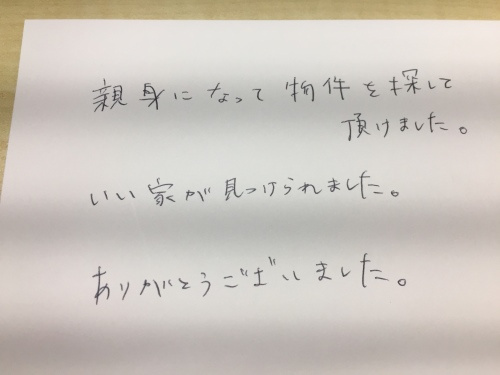 親身になって物件を探して
頂けました。
いい家が見つけられました。
ありがとうございました。